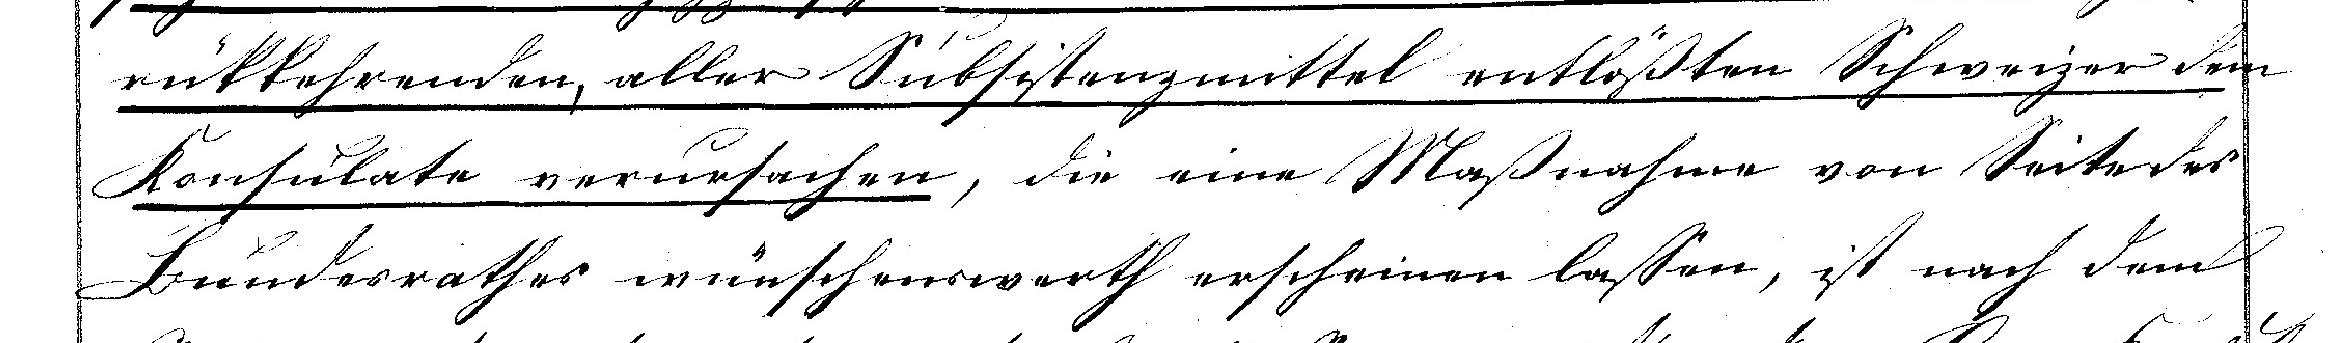 rükkehrenden, aller Subsistenzmittel entlößten Schweizer dem
Konsulate verursachen, die eine Maßnahme von Seite des
Bundesrathes wünschenswerth erscheinen lassen, ist nach dem